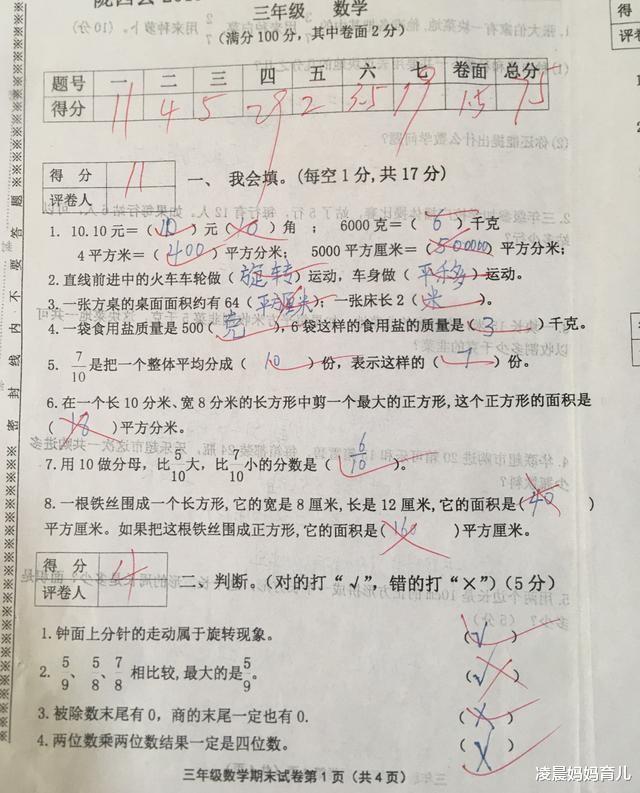 三年级 数学
(满分100分,其中卷面2分)
题号 一 二 三 四 五 六 七 卷面 总分
得分 11 4 5 29 2 3.5 19 1.5 75
得分 11
评卷人
一、我会填。(每空1分,共17分)
1. 10.10元=(10)元( )角 ; 6000克=(6)千克
4平方米=(400)平方分米; 5000平方厘米=(500000)平方分米;
2.直线前进中的火车车轮做(旋转)运动,车身做(平移)运动。
3.一张方桌的桌面面积约有64(平方厘米);一张床长2(米)。
4.一袋食用盐质量是500(克),6袋这样的食用盐的质量是(3)千克。
5. 7/10是把一个整体平均分成(10)份,表示这样的(7)份。
6.在一个长10分米、宽8分米的长方形中剪一个最大的正方形,这个正方形的面积是
(18)平方分米。
7.用10做分母,比5/10大,比7/10小的分数是(6/10)。
8.一根铁丝围成一个长方形,它的宽是8厘米,长是12厘米,它的面积是(40)
平方厘米。如果把这根铁丝围成正方形,它的面积是(160)平方厘米。
得分 4
评卷人
二、判断。(对的打“√”,错的打“×”)(5分)
1.钟面上分针的走动属于旋转现象。 (√)
2. 5/9、5/8、7/8 相比较,最大的是5/9。 (√)
3.被除数末尾有0,商的末尾一定也有0. (×)
4.两位数乘两位数结果一定是四位数。 (×)
三年级数学期末试卷第1页(共4页)
密封线内不要答题
凌晨妈妈育儿